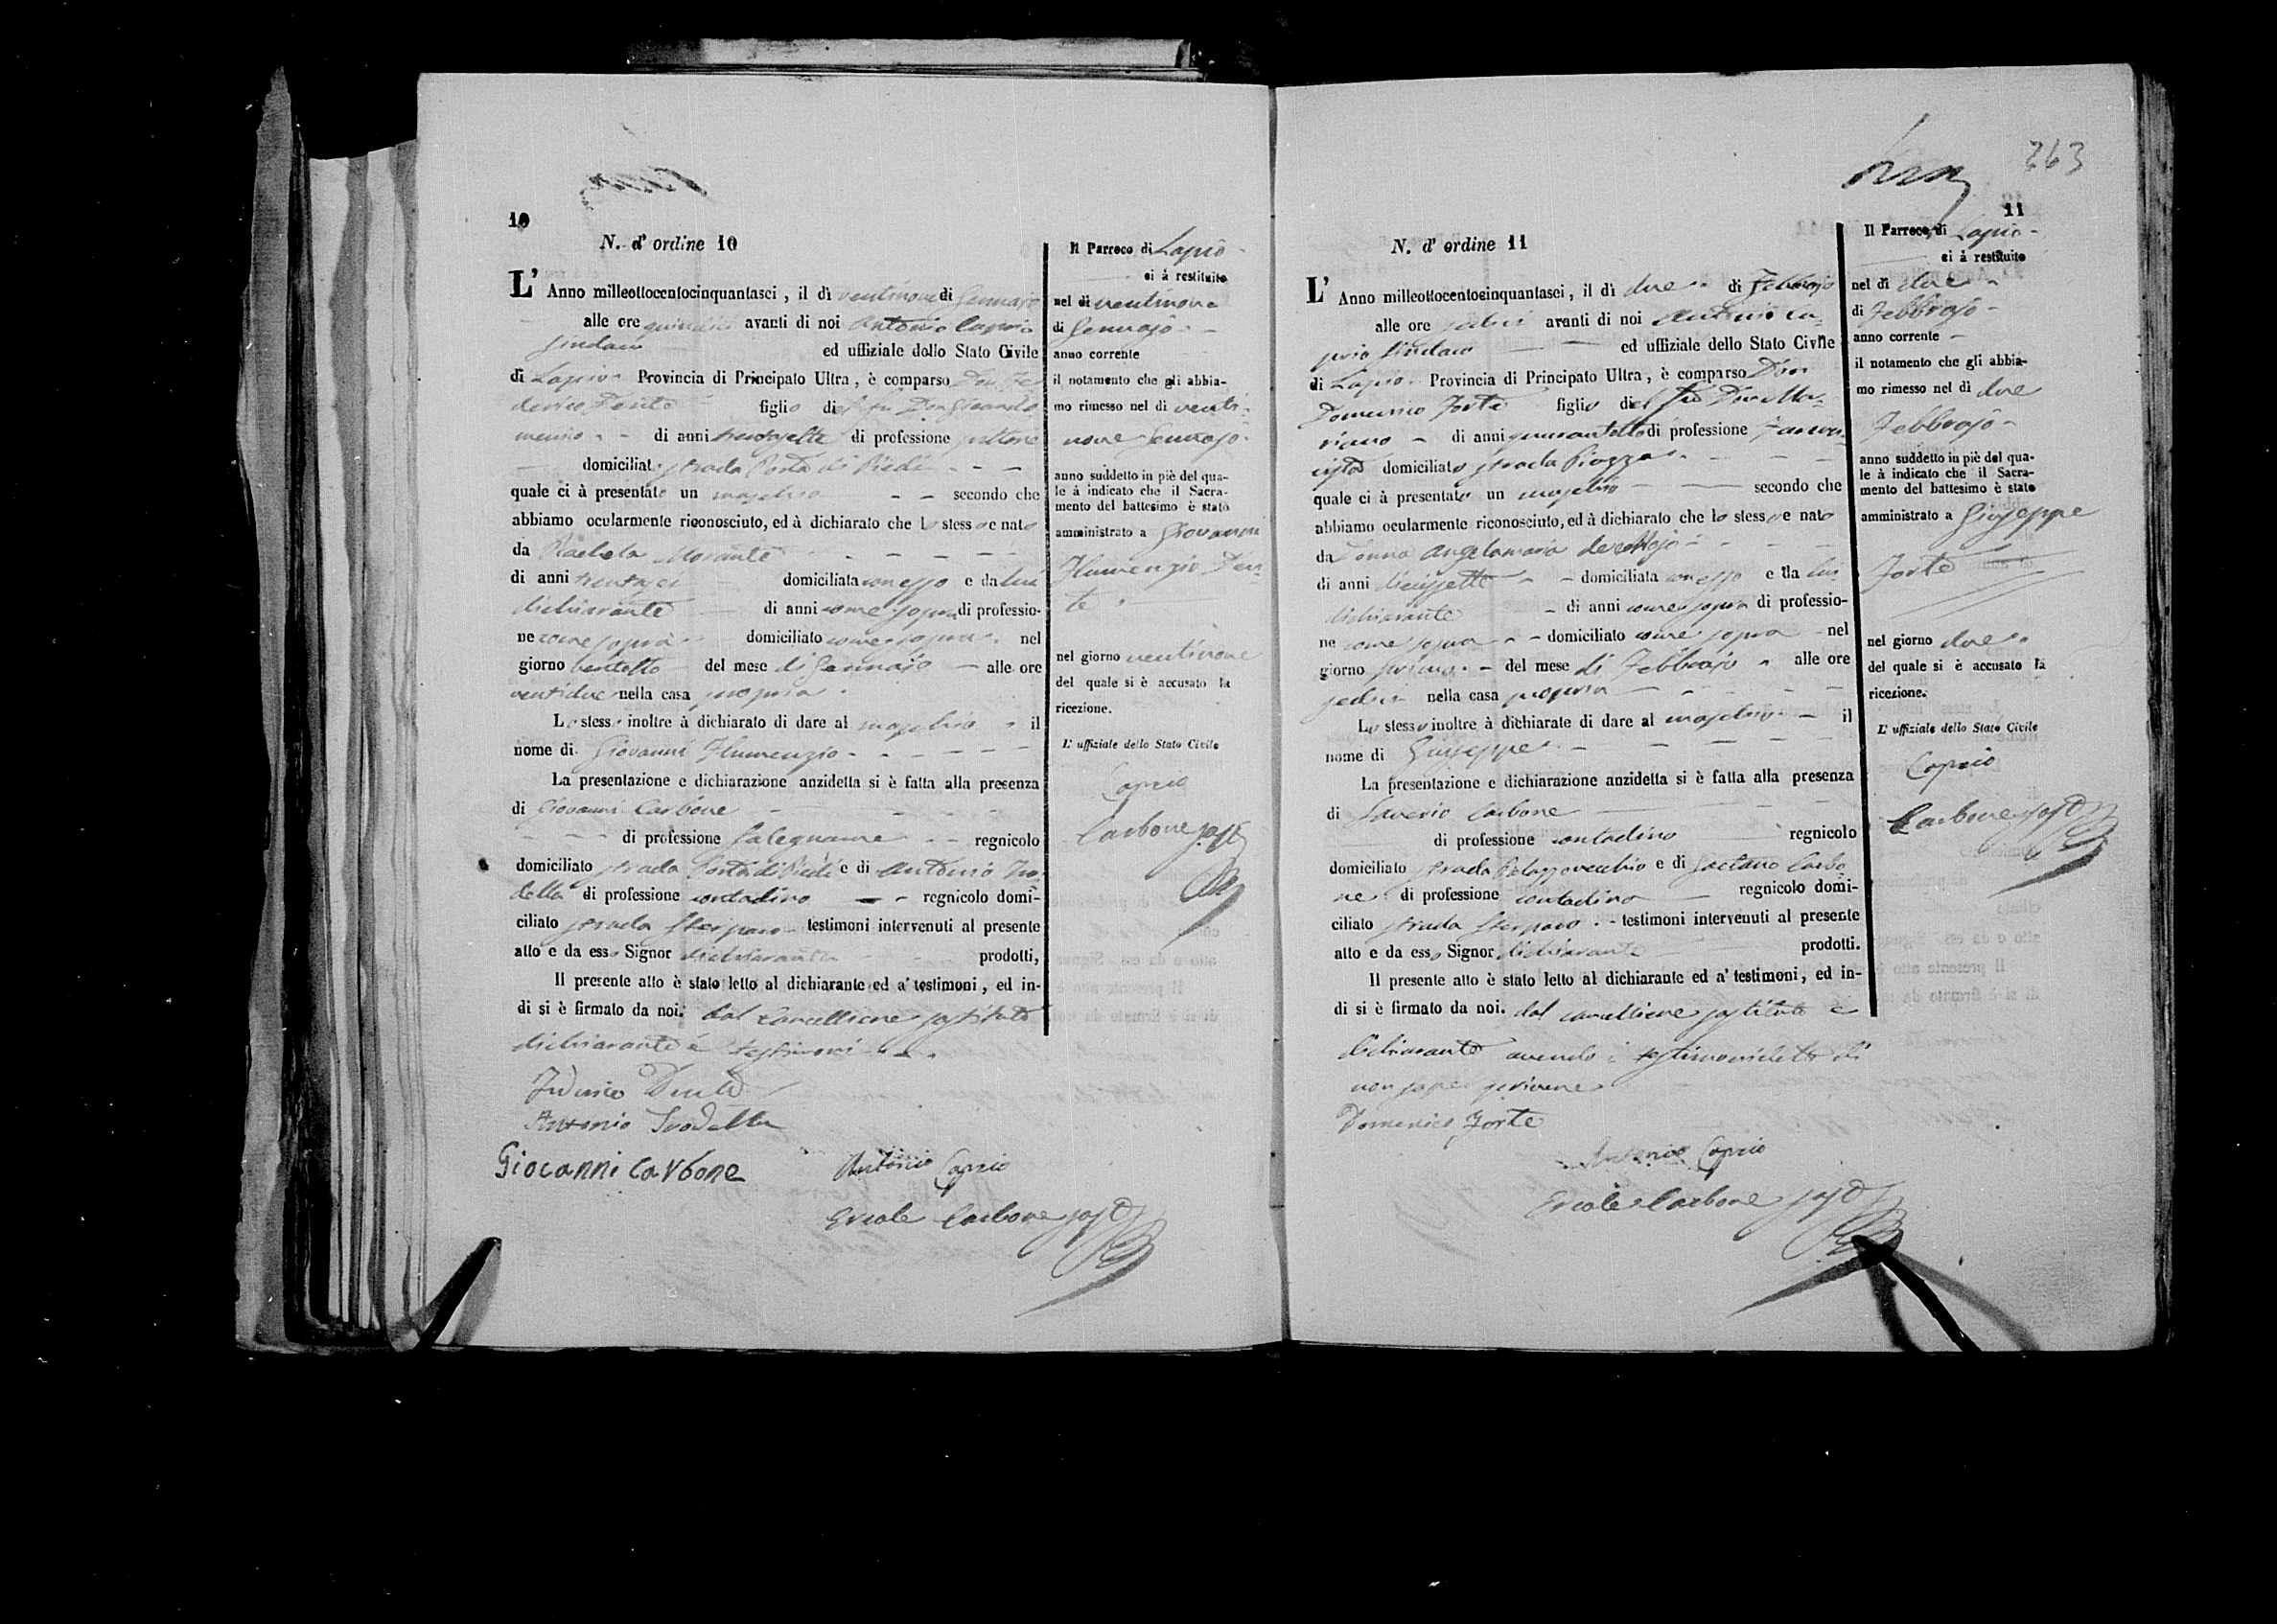 10
N. d' ordine 10
L' Anno milleottocentocinquantasei, il dì ventinove di Gennajo
alle ore quindici avanti di noi Antonio Caprio
Sindaco ed uffiziale dello Stato Civile
di Lapio Provincia di Principato Ultra, è comparso Don Fe-
derico Dente figlio del fu Don
di anni trentasette di professione
domiciliato strada Porta di Piedi
quale ci à presentato un maschio secondo che
abbiamo ocularmente riconosciuto, ed à dichiarato che lo stesso e nato
da Rachela Morante
di anni trentasei domiciliata con esso e da lui
dichiarante di anni come sopra di professio-
ne come sopra domiciliato come sopra nel
giorno ventotto del mese di Gennajo alle ore
ventidue nella casa propria
Lo stesso inoltre à dichiarato di dare al maschio il
nome di Giovanni Flumenzio
La presentazione e dichiarazione anzidetta si è fatta alla presenza
di Giovanni Carbone
di professione Falegname regnicolo
domiciliato strada Porta di Piedi e di Antonio Iro-
della di professione contadino regnicolo domi-
ciliato strada testimoni intervenuti al presente
atto e da esso Signor dichiarante prodotti,
Il presente atto è stato letto al dichiarante ed a' testimoni, ed in-
di si è firmato da noi. dal Cancelliere sostituto
dichiarante e testimoni
Federico Dente
Antonio Irodella
Giocanni Carbone
Antonio Caprio
Ercole Carbone sost
Il Parroco di Lapio
ci à restituito
nel dì ventinove
di Gennajo
anno corrente
il notamento che gli abbia-
mo rimesso nel dì venti-
nove Gennajo
anno suddetto in piè del qua-
le à indicato che il Sacra-
mento del battesimo è stato
amministrato a Giovanni
Flumenzio Den-
te
nel giorno ventinove
del quale si è accusato la
ricezione.
L' uffiziale dello Stato Civile
Caprio
Carbone sost
263
11
N. d' ordine 11
L' Anno milleottocentocinquantasei, il dì due di Febbrajo
alle ore sedici avanti di noi Antonio Ca-
prio Sindaco ed uffiziale dello Stato Civile
di Lapio Provincia di Principato Ultra, è comparso Don
Domenico Forte figlio del fu Don Ma-
riano di anni quarantotto di professione Farma-
cista domiciliato strada Piazza
quale ci à presentato un maschio secondo che
abbiamo ocularmente riconosciuto, ed à dichiarato che lo stesso e nato
da Donna Angelamaria
di anni diecissette domiciliata con esso e da lui
dichiarante di anni come sopra di professio-
ne come sopra domiciliato come sopra nel
giorno primo del mese di Febbrajo alle ore
sedici nella casa propria
Lo stesso inoltre à dichiarato di dare al maschio il
nome di Giuseppe
La presentazione e dichiarazione anzidetta si è fatta alla presenza
di Saverio Carbone
di professione contadino regnicolo
domiciliato strada Palazzovecchio e di Gaetano Carbo-
ne di professione contadino regnicolo domi-
ciliato strada testimoni intervenuti al presente
atto e da esso Signor dichiarante prodotti.
Il presente atto è stato letto al dichiarante ed a' testimoni, ed in-
di si è firmato da noi. dal cancelliere sostituto e
dichiarante avendo i testimoni detto di
non saper scrivere
Domenico Forte
Antonio Caprio
Ercole Carbone sost
Il Parroco di Lapio
ci à restituito
nel dì due
di Febbrajo
anno corrente
il notamento che gli abbia-
mo rimesso nel dì due
Febbrajo
anno suddetto in piè del qua-
le à indicato che il Sacra-
mento del battesimo è stato
amministrato a Giuseppe
Forte
nel giorno due
del quale si è accusato la
ricezione.
L' uffiziale dello Stato Civile
Caprio
Carbone sost